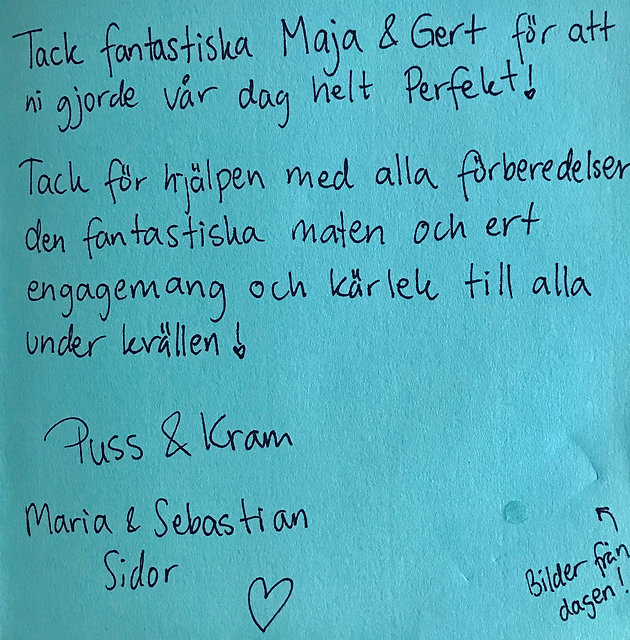 Tack fantastiska Maja & Gert för att
ni gjorde vår dag helt Perfekt!
Tack för hjälpen med alla förberedelser
den fantastiska maten och ert
engagemang och kärlek till alla
under kvällen!
Puss & Kram
Maria & Sebastian
Sidor
Bilder från
dagen!